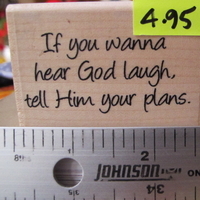 4.95
If you wanna
hear God laugh,
tell Him your plans.
1 2
JOHNSON
3/4